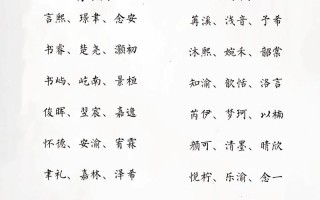 言熙、璟聿、念安
书睿、楚尧、灏初
书屿、屹南、景桓
俊晖、堃宸、嘉逸
怀德、安渝、宥霖
聿礼、嘉林、泽希
苒溪、浅音、予希
沐熙、婉禾、韶棠
知渝、歆恬、洛言
芮伊、梦珂、以楠
颜可、清墨、晴欣
悦柠、乐渝、念一